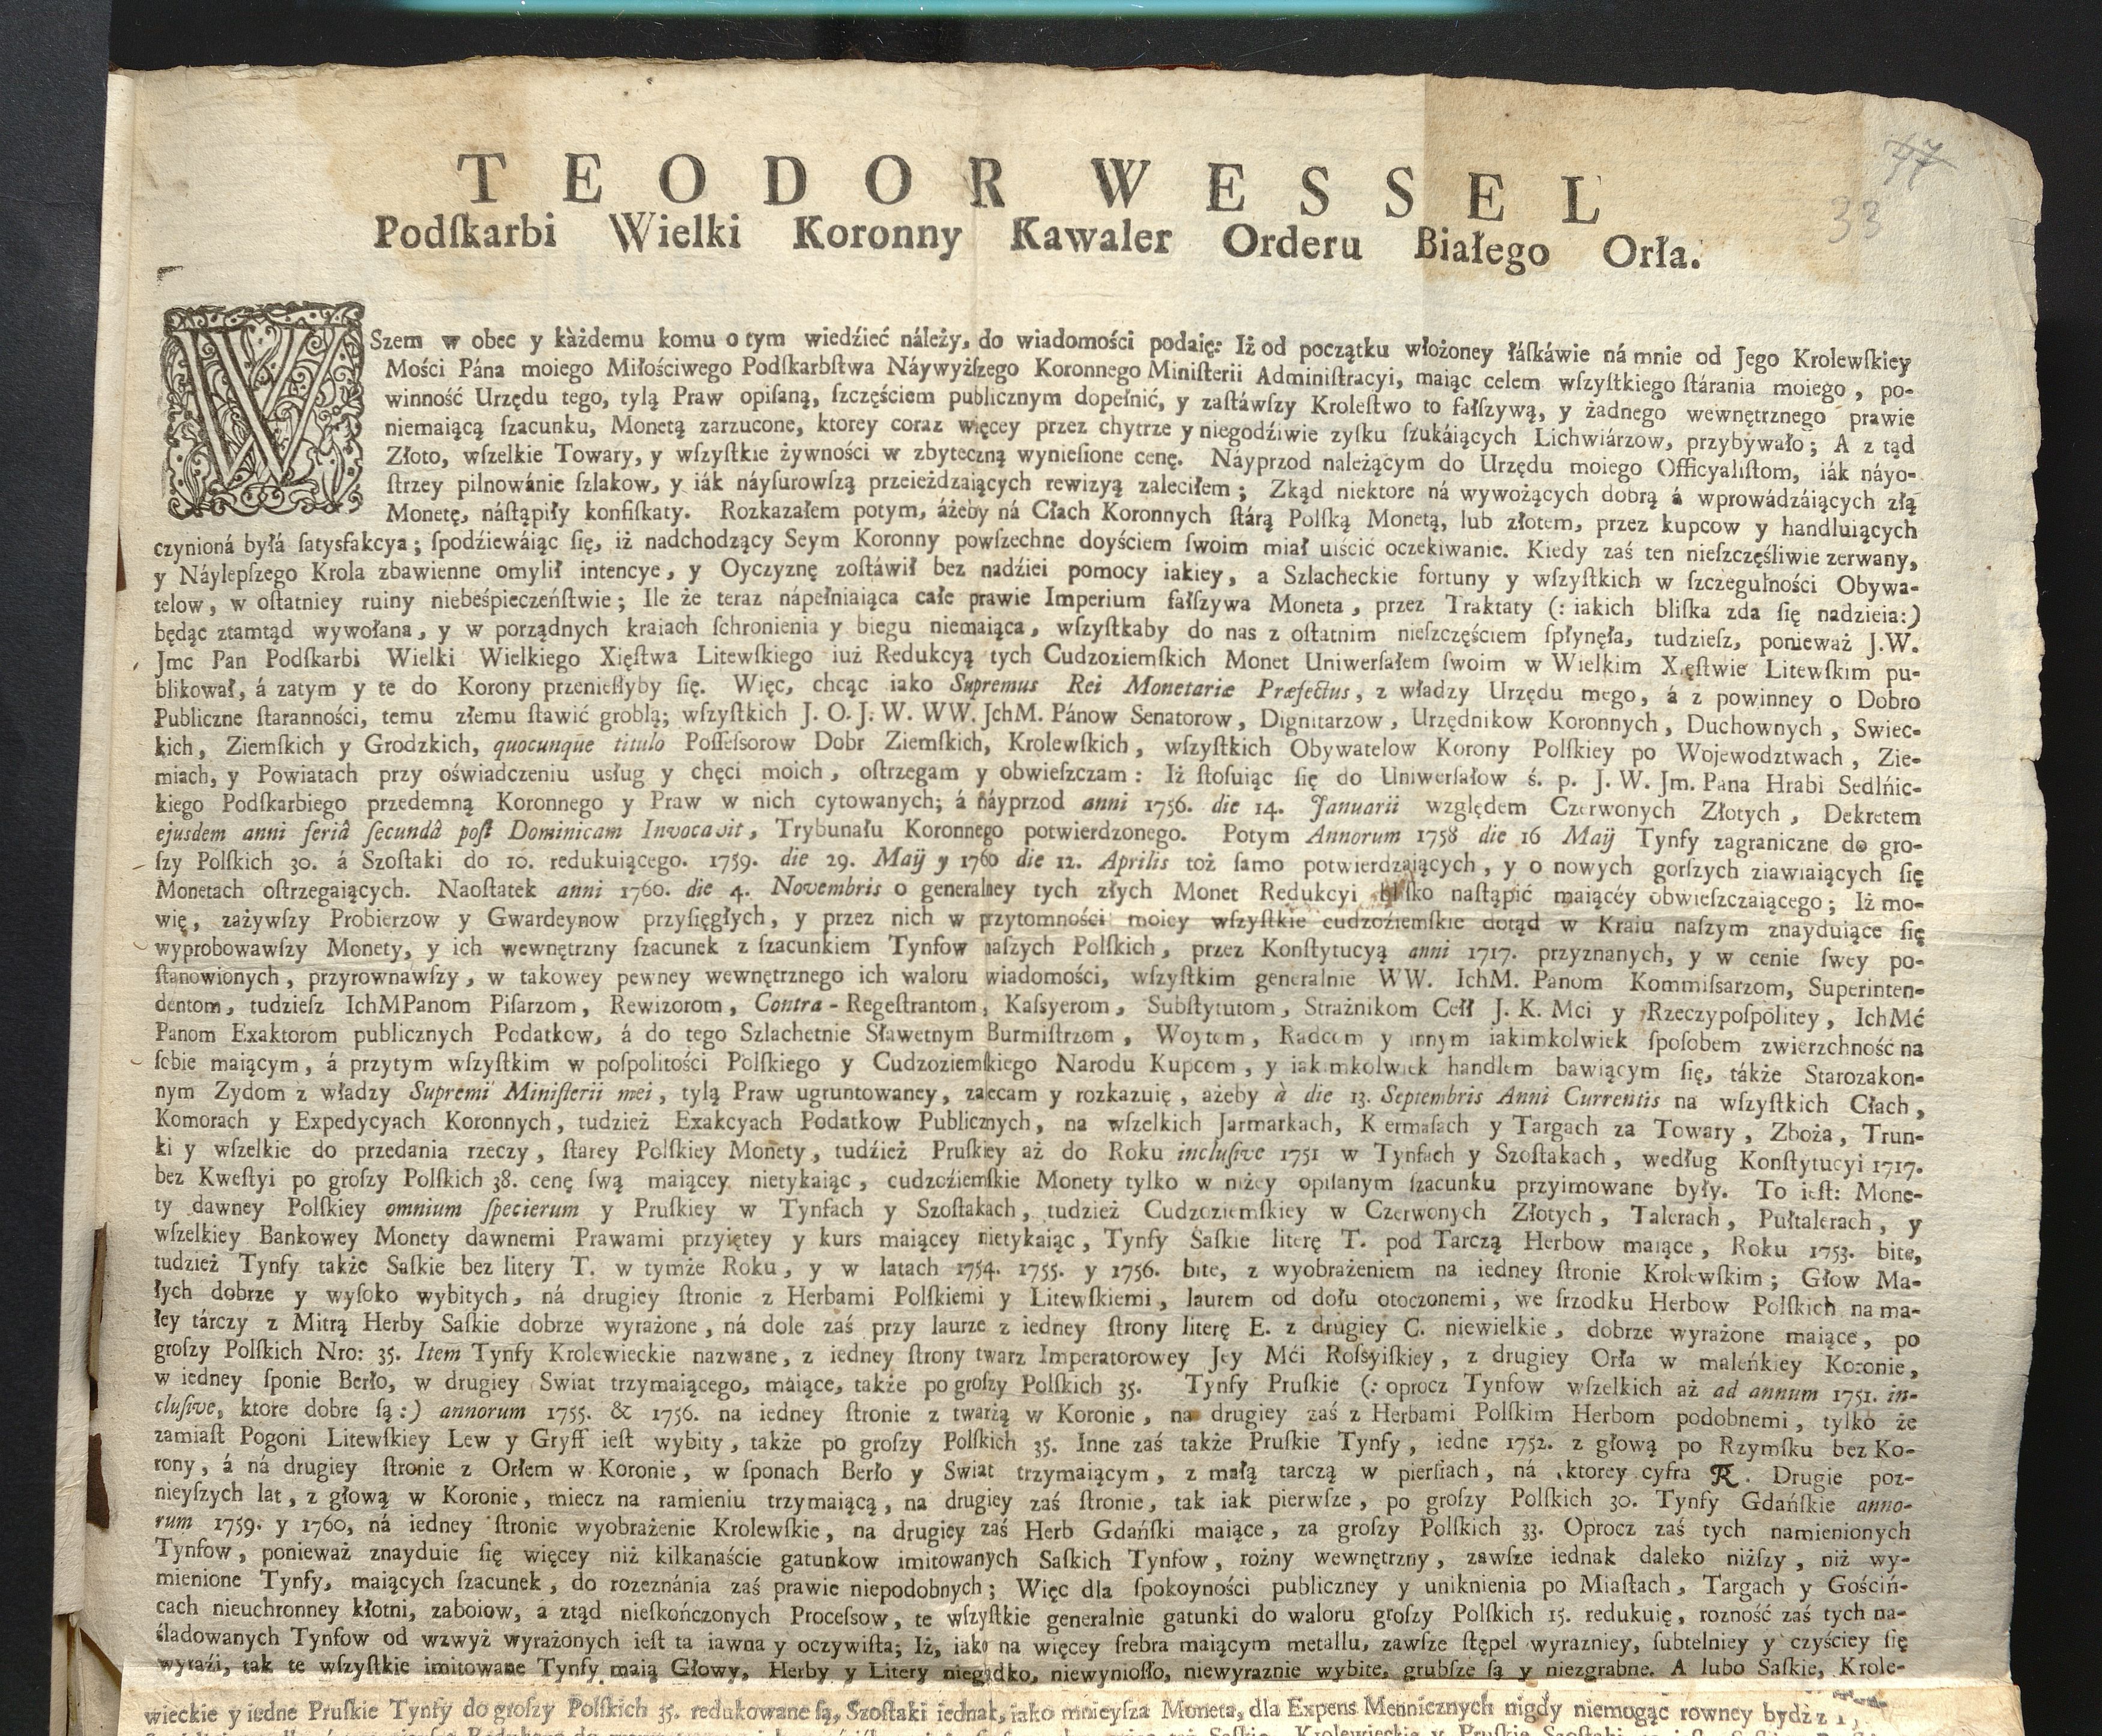 TEODOR WESSEL
Podſkarbi Wielki Koronny Kawaler Orderu Białego Orła.
47
33
WSzem w obec y kàżdemu komu o tym wiedźieć náleży, do wiadomości podaię: Iż od początku włożoney łáſkáwie ná mnie od Jego Krolewſkiey
Mości Pána moiego Miłościwego Podſkarbſtwa Náywyżſzego Koronnego Miniſterii Adminiſtracyi, maiąc celem wſzyſtkiego ſtárania moiego, po-
winność Urzędu tego, tylą Praw opiſaną, ſzczęściem publicznym dopełnić, y zaſtáwſzy Kroleſtwo to fałſzywą, y żadnego wewnętrznego prawie
niemaiącą ſzacunku, Monetą zarzucone, ktorey coraz więcey przez chytrze y niegodźiwie zyſku ſzukáiących Lichwiárzow, przybywało; A z tąd
Złoto, wſzelkie Towary, y wſzyſtkie żywności w zbyteczną wynieſione cenę. Náyprzod należącym do Urzędu moiego Officyaliſtom, iák náyo-
ſtrzey pilnowánie ſzlakow, y iák náyſurowſzą przeieżdzaiących rewizyą zaleciłem; Zkąd niektore ná wywożących dobrą á wprowádzáiących złą
Monetę, náſtąpiły konfiſkaty. Rozkazałem potym, áżeby ná Cłach Koronnych ſtárą Polſką Monetą, lub złotem, przez kupcow y handluiących
czynioná byłá ſatysfakcya; ſpodźiewáiąc ſię, iż nadchodzący Seym Koronny powſzechne doyściem ſwoim miał uiścić oczekiwanie. Kiedy zaś ten nieſzczęśliwie zerwany,
y Náylepſzego Krola zbawienne omylił intencye, y Oyczyznę zoſtáwił bez nadźiei pomocy iakiey, a Szlacheckie fortuny y wſzyſtkich w ſzczegulności Obywa-
telow, w oſtatniey ruiny niebeśpieczeńſtwie; Ile że teraz nápełniaiąca całe prawie Imperium fałſzywa Moneta, przez Traktaty (: iakich bliſka zda ſię nadzieia:)
będąc ztamtąd wywołana, y w porządnych kraiach ſchronienia y biegu niemaiąca, wſzyſtkaby do nas z oſtatnim nieſzczęściem ſpłynęła, tudzieſz, ponieważ J.W.
Jmc Pan Podſkarbi Wielki Wielkiego Xięſtwa Litewſkiego iuż Redukcyą tych Cudzoziemſkich Monet Uniwerſałem ſwoim w Wielkim Xięſtwie Litewſkim pu-
blikował, á zatym y te do Korony przenieſłyby ſię. Więc, chcąc iako Supremus Rei Monetariæ Præfectus, z władzy Urzędu mego, á z powinney o Dobro
Publiczne ſtaranności, temu złemu ſtawić groblą; wſzyſtkich J. O. J. W. WW. JchM. Pánow Senatorow, Dignitarzow, Urzędnikow Koronnych, Duchownych, Swiec-
kich, Ziemſkich y Grodzkich, quocunque titulo Poſſeſsorow Dobr Ziemſkich, Krolewſkich, wſzyſtkich Obywatelow Korony Polſkiey po Wojewodztwach, Zie-
miach, y Powiatach przy oświadczeniu uſług y chęci moich, oſtrzegam y obwieſzczam: Iż ſtoſuiąc ſię do Uniwerſałow ś. p. J. W. Jm. Pana Hrabi Sedlńic-
kiego Podſkarbiego przedemną Koronnego y Praw w nich cytowanych; á náyprzod anni 1756. die 14. Januarii względem Czerwonych Złotych, Dekretem
ejusdem anni feriâ ſecundâ poſt Dominicam Invocavit, Trybunału Koronnego potwierdzonego. Potym Annorum 1758 die 16 Maij Tynfy zagraniczne do gro-
ſzy Polſkich 30. á Szoſtaki do 10. redukuiącego. 1759. die 29. Maij y 1760 die 12. Aprilis toż ſamo potwierdzaiących, y o nowych gorſzych ziawiaiących ſię
Monetach oſtrzegaiących. Naoſtatek anni 1760. die 4. Novembris o generalney tych złych Monet Redukcyi bliſko naſtąpić maiącéy obwieſzczaiącego; Iż mo-
wię, zażywſzy Probierzow y Gwardeynow przyſięgłych, y przez nich w przytomności moiey wſzyſtkie cudzoźiemſkie dotąd w Kraiu naſzym znayduiące ſię
wyprobowawſzy Monety, y ich wewnętrzny ſzacunek z ſzacunkiem Tynfow naſzych Polſkich, przez Konſtytucyą anni 1717. przyznanych, y w cenie ſwey po-
ſtanowionych, przyrownawſzy, w takowey pewney wewnętrznego ich waloru wiadomości, wſzyſtkim generalnie WW. IchM. Panom Kommiſsarzom, Superinten-
dentom, tudzieſz IchMPanom Piſarzom, Rewizorom, Contra-Regeſtrantom, Kaſsyerom, Subſtytutom, Strażnikom Cełł J. K. Mci y Rzeczypoſpolitey, IchMć
Panom Exaktorom publicznych Podatkow, á do tego Szlachetnie Sławetnym Burmiſtrzom, Woytom, Radcom y innym iakimkolwiek ſpoſobem zwierzchność na
ſobie maiącym, á przytym wſzyſtkim w poſpolitości Polſkiego y Cudzoziemſkiego Narodu Kupcom, y iakimkolwiek handlem bawiącym ſię, tákże Starozakon-
nym Zydom z władzy Supremi Miniſterii mei, tylą Praw ugruntowaney, zaecam y rozkazuię, ażeby à die 13. Septembris Anni Currentis na wſzyſtkich Cłach,
Komorach y Expedycyach Koronnych, tudzież Exakcyach Podatkow Publicznych, na wſzelkich Jarmarkach, Kermaſach y Targach za Towary, Zboża, Trun-
ki y wſzelkie do przedania rzeczy, ſtarey Polſkiey Monety, tudźież Pruſkiey aż do Roku incluſive 1751 w Tynfach y Szoſtakach, według Konſtytucyi 1717.
bez Kweſtyi po groſzy Polſkich 38. cenę ſwą maiącey nietykaiąc, cudzoźiemſkie Monety tylko w niżey opiſanym ſzacunku przyimowane były. To ieſt: Mone-
ty dawney Polſkiey omnium ſpecierum y Pruſkiey w Tynfach y Szoſtakach, tudzież Cudzoziemſkiey w Czerwonych Złotych, Talerach, Pułtalerach, y
wſzelkiey Bankowey Monety dawnemi Prawami przyiętey y kurs maiącey nietykaiąc, Tynfy Saſkie literę T. pod Tarczą Herbow maiące, Roku 1753. bite,
tudzież Tynfy także Saſkie bez litery T. w tymże Roku, y w latach 1754. 1755. y 1756. bite, z wyobrażeniem na iedney ſtronie Krolewſkim; Głow Ma-
łych dobrze y wyſoko wybitych, ná drugiey ſtronie z Herbami Polſkiemi y Litewſkiemi, laurem od dołu otoczonemi, we ſrzodku Herbow Polſkich na ma-
łey tárczy z Mitrą Herby Saſkie dobrze wyrażone, ná dole zaś przy laurze z iedney ſtrony literę E. z drugiey C. niewielkie, dobrze wyrażone maiące, po
groſzy Polſkich Nro: 35. Item Tynfy Krolewieckie nazwane, z iedney ſtrony twarz Imperatorowey Jey Mći Roſsyiſkiey, z drugiey Orła w maleńkiey Koronie,
w iedney ſponie Berło, w drugiey Swiat trzymaiącego, máiące, także po groſzy Polſkich 35. Tynfy Pruſkie (: oprocz Tynfow wſzelkich aż ad annum 1751. in-
cluſive, ktore dobre ſą:) annorum 1755. & 1756. na iedney ſtronie z twarżą w Koronie, na drugiey zaś z Herbami Polſkim Herbom podobnemi, tylko że
zamiaſt Pogoni Litewſkiey Lew y Gryff ieſt wybity, także po groſzy Polſkich 35. Inne zaś także Pruſkie Tynfy, iedne 1752. z głową po Rzymſku bez Ko-
rony, á ná drugiey ſtronie z Orłem w Koronie, w ſponach Berło y Swiat trzymaiącym, z małą tarczą w pierſiach, ná ktorey cyfra R. Drugie poz-
nieyſzych lat, z głową w Koronie, miecz na ramieniu trzymaiącą, na drugiey zaś ſtronie, tak iak pierwſze, po groſzy Polſkich 30. Tynfy Gdańſkie anno-
rum 1759. y 1760, ná iedney ſtronie wyobrażenie Krolewſkie, na drugiey zaś Herb Gdańſki maiące, za groſzy Polſkich 33. Oprocz zaś tych namienionych
Tynfow, ponieważ znayduie ſię więcey niż kilkanaście gatunkow imitowanych Saſkich Tynfow, rożny wewnętrzny, zawſze iednak daleko niżſzy, niż wy-
mienione Tynfy, maiących ſzacunek, do rozeznánia zaś prawie niepodobnych; Więc dla ſpokoyności publiczney y uniknienia po Miaſtach, Targach y Gościń-
cach nieuchronney kłotni, zaboiow, a ztąd nieſkończonych Proceſsow, te wſzyſtkie generalnie gatunki do waloru groſzy Polſkich 15. redukuię, rozność zaś tych na-
śladowanych Tynfow od wzwyż wyrażonych ieſt ta iawna y oczywiſta; Iż, iako na więcey ſrebra maiącym metallu, zawſze ſtępel wyrazniey, ſubtelniey y czyściey ſię
wyrazi, tak te wſzyſtkie imitowane Tynfy maią Głowy, Herby y Litery niegładko, niewynioſło, niewyraznie wybite, grubſze ſą y niezgrabne. A lubo Saſkie, Krole-
wieckie y iedne Pruſkie Tynfy do groſzy Polſkich 35. redukowane ſą, Szoſtaki iednak, iako mnieyſza Moneta, dla Expens Mennicznych nigdy niemogąc rowney bydź z
Saſkie, Krolewieckie y Pruſkie Szoſtaki